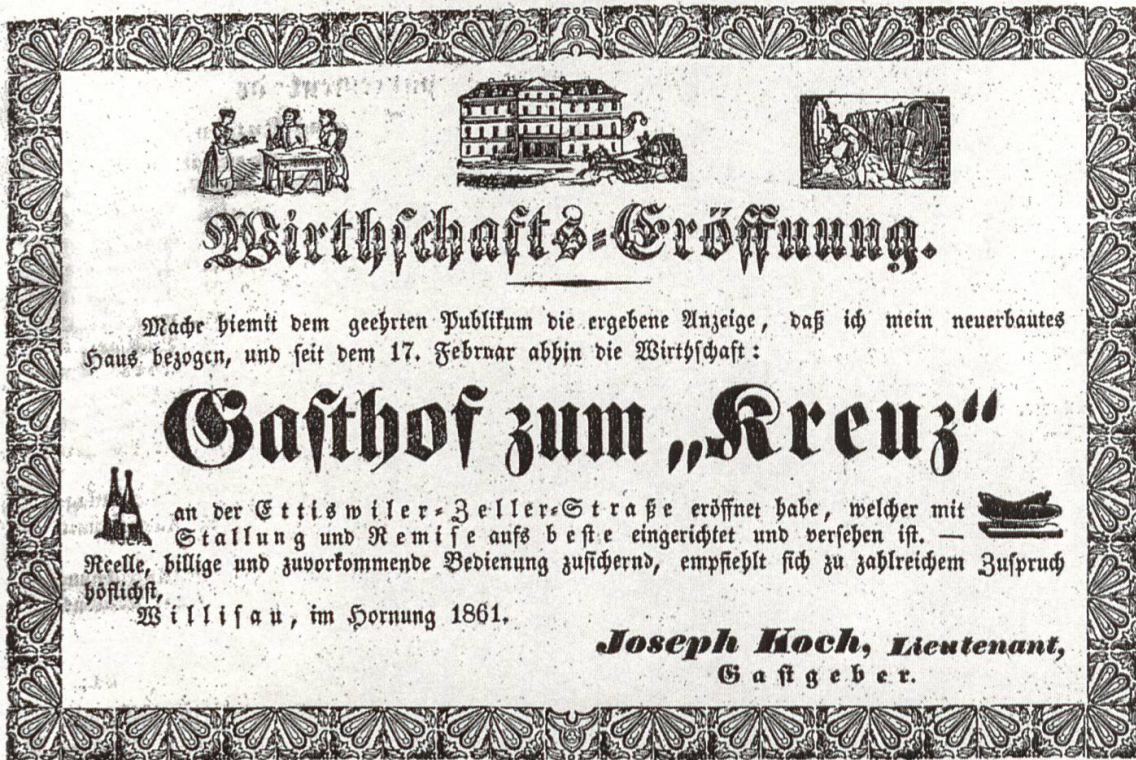 Wirthschafts-Eröffnung.
Mache hiemit dem geehrten Publikum die ergebene Anzeige, daß ich mein neuerbautes
Haus bezogen, und seit dem 17. Februar abhin die Wirthschaft:
Gasthof zum „Kreuz“
an der Ettiswiler-Zeller-Straße eröffnet habe, welcher mit
Stallung und Remise aufs beste eingerichtet und versehen ist. —
Reelle, billige und zuvorkommende Bedienung zusichernd, empfiehlt sich zu zahlreichem Zuspruch
höflichst,
Willisau, im Hornung 1861.
Joseph Koch, Lieutenant,
Gastgeber.